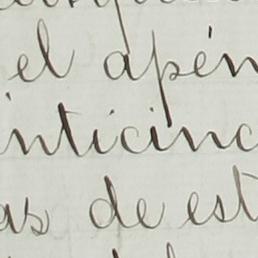 el apén
inticinc
as de est